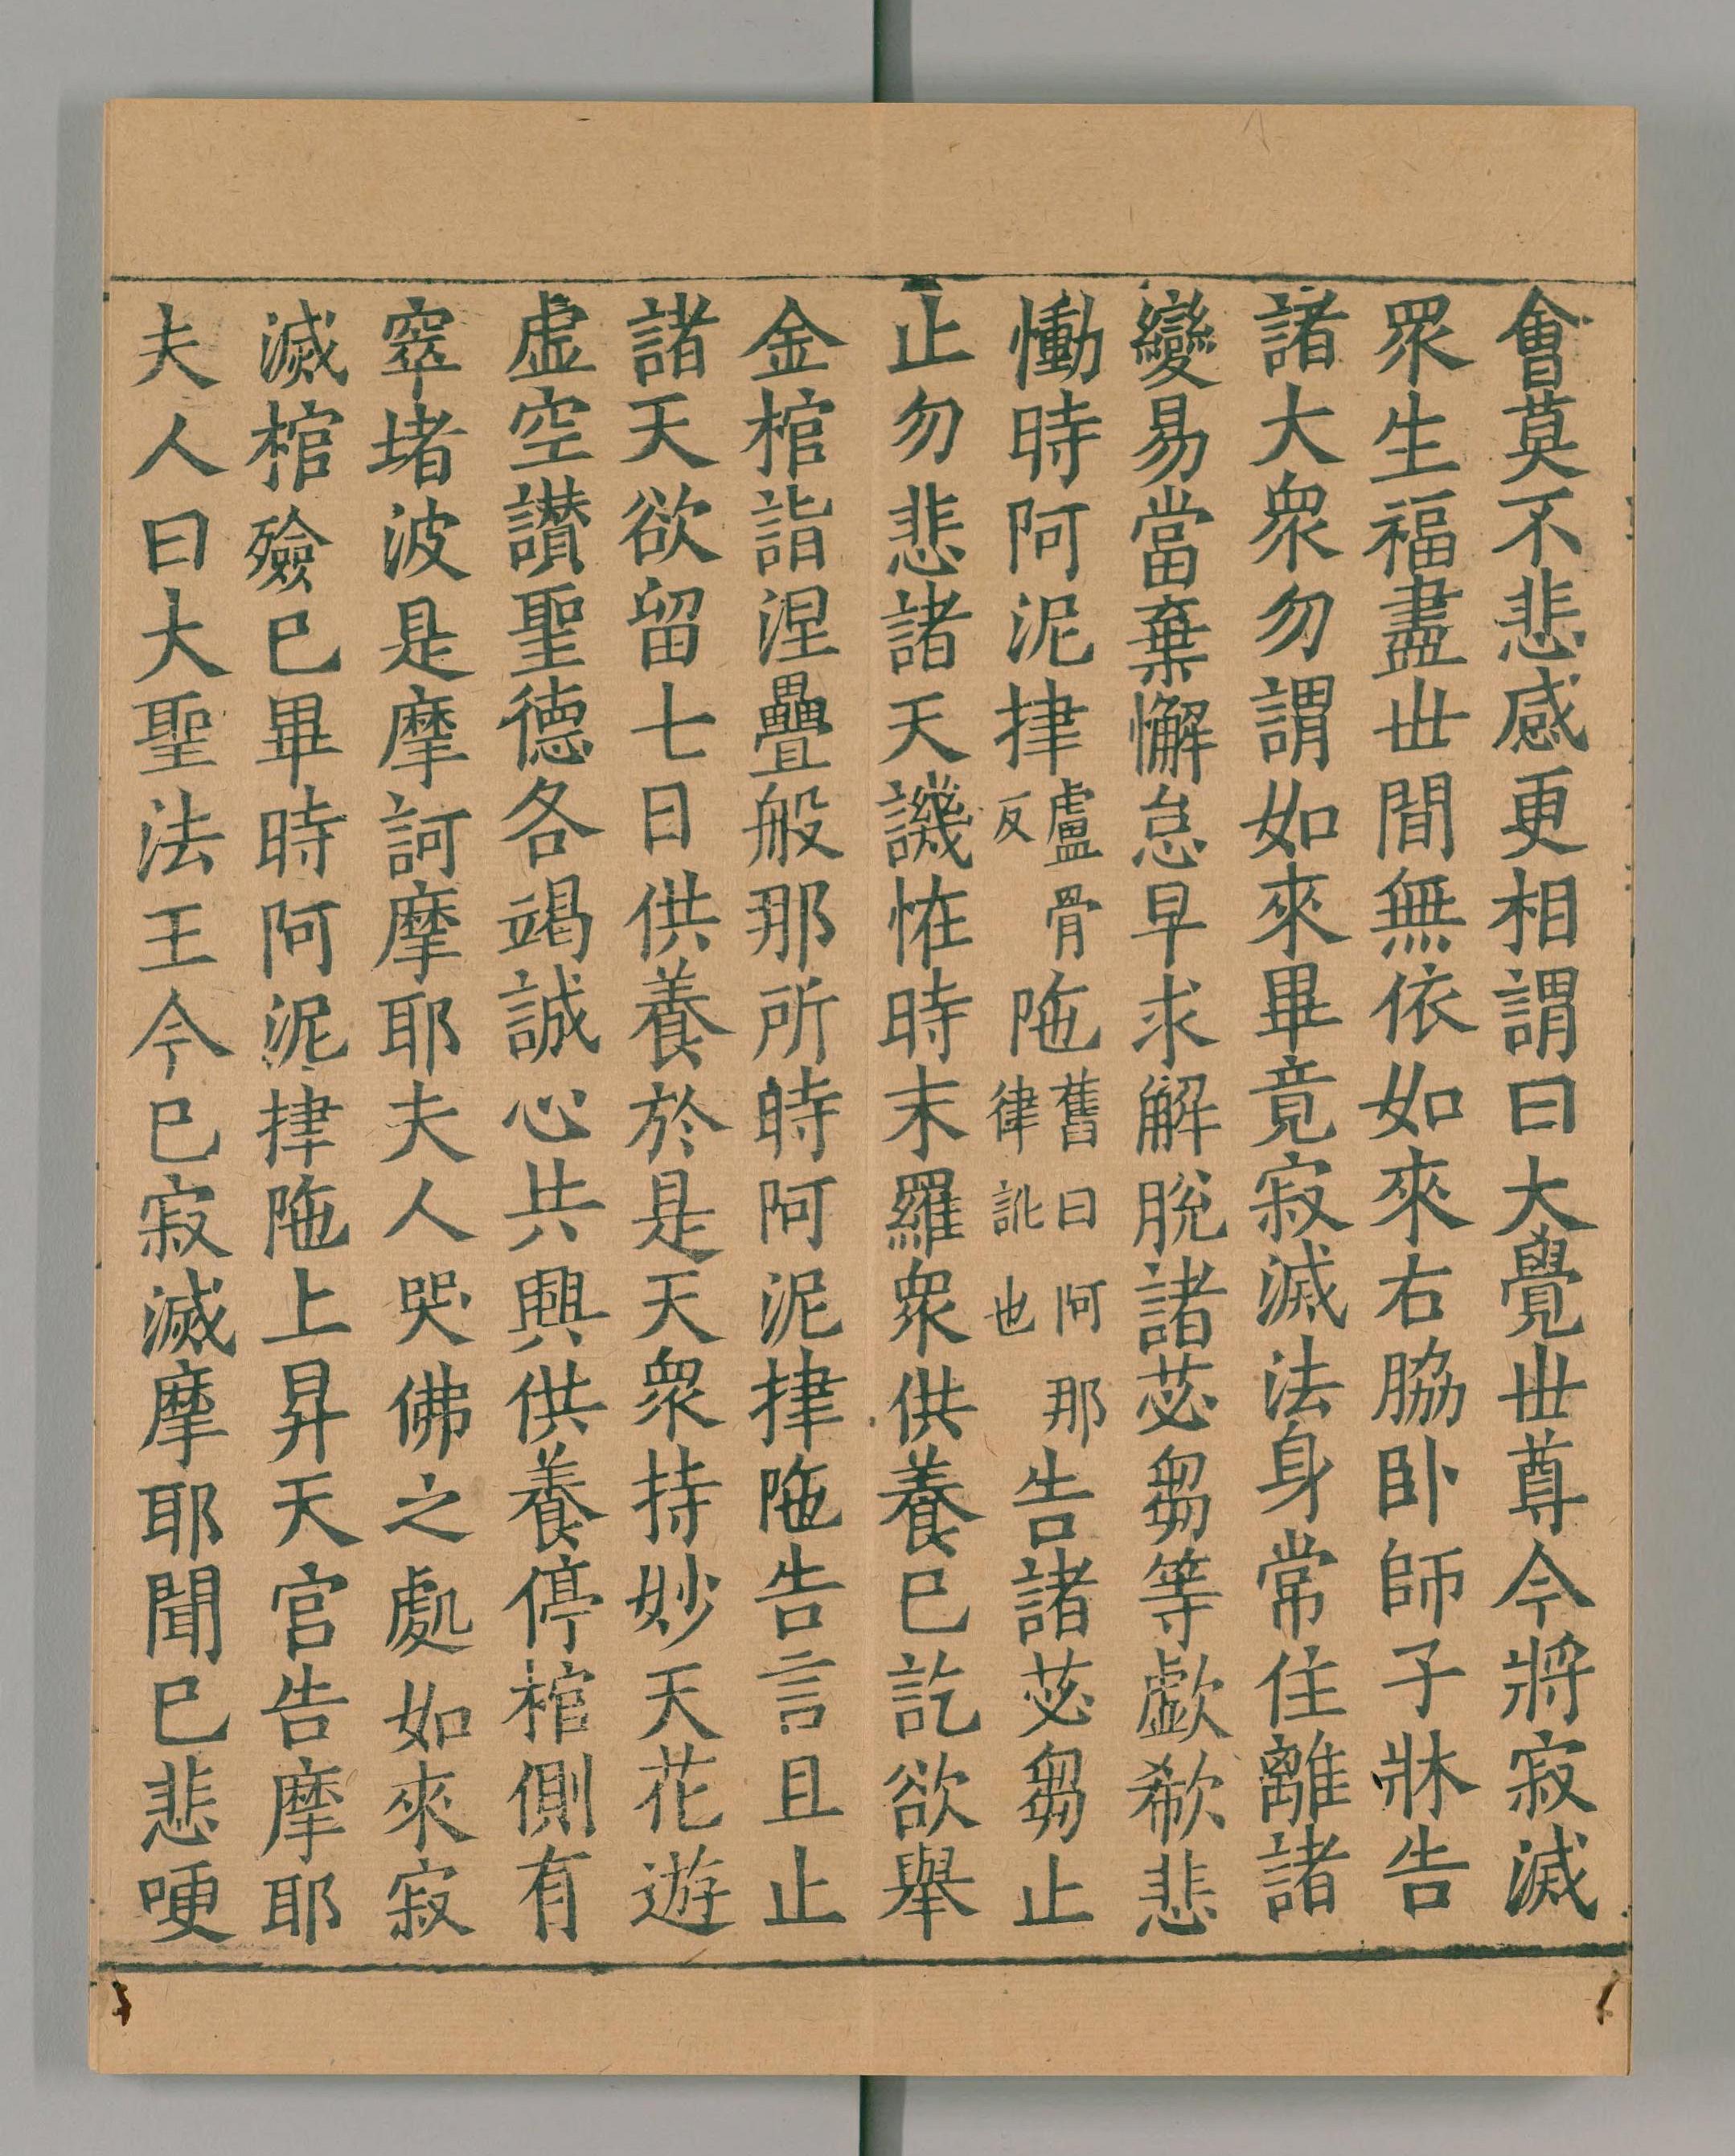 會莫不悲感更相謂曰大覺世尊今將寂滅
眾生福盡世間無依如來右脇臥師子牀告
諸大眾勿謂如來畢竟寂滅法身常住離諸
變易當棄懈怠早求解脫諸苾芻等歔欷悲
慟時阿泥㨗盧骨反陁舊曰阿那律訛也告諸苾芻止
止勿悲諸天譏恠時末羅眾供養已訖欲舉
金棺詣涅疊般那所時阿泥㨗陁告言且止
諸天欲留七日供養於是天眾持妙天花遊
虛空讚聖德各竭誠心共興供養停棺側有
窣堵波是摩訶摩耶夫人哭佛之處如來寂
滅棺殮已畢時阿泥㨗陁上昇天官告摩耶
夫人曰大聖法王今已寂滅摩耶聞已悲哽